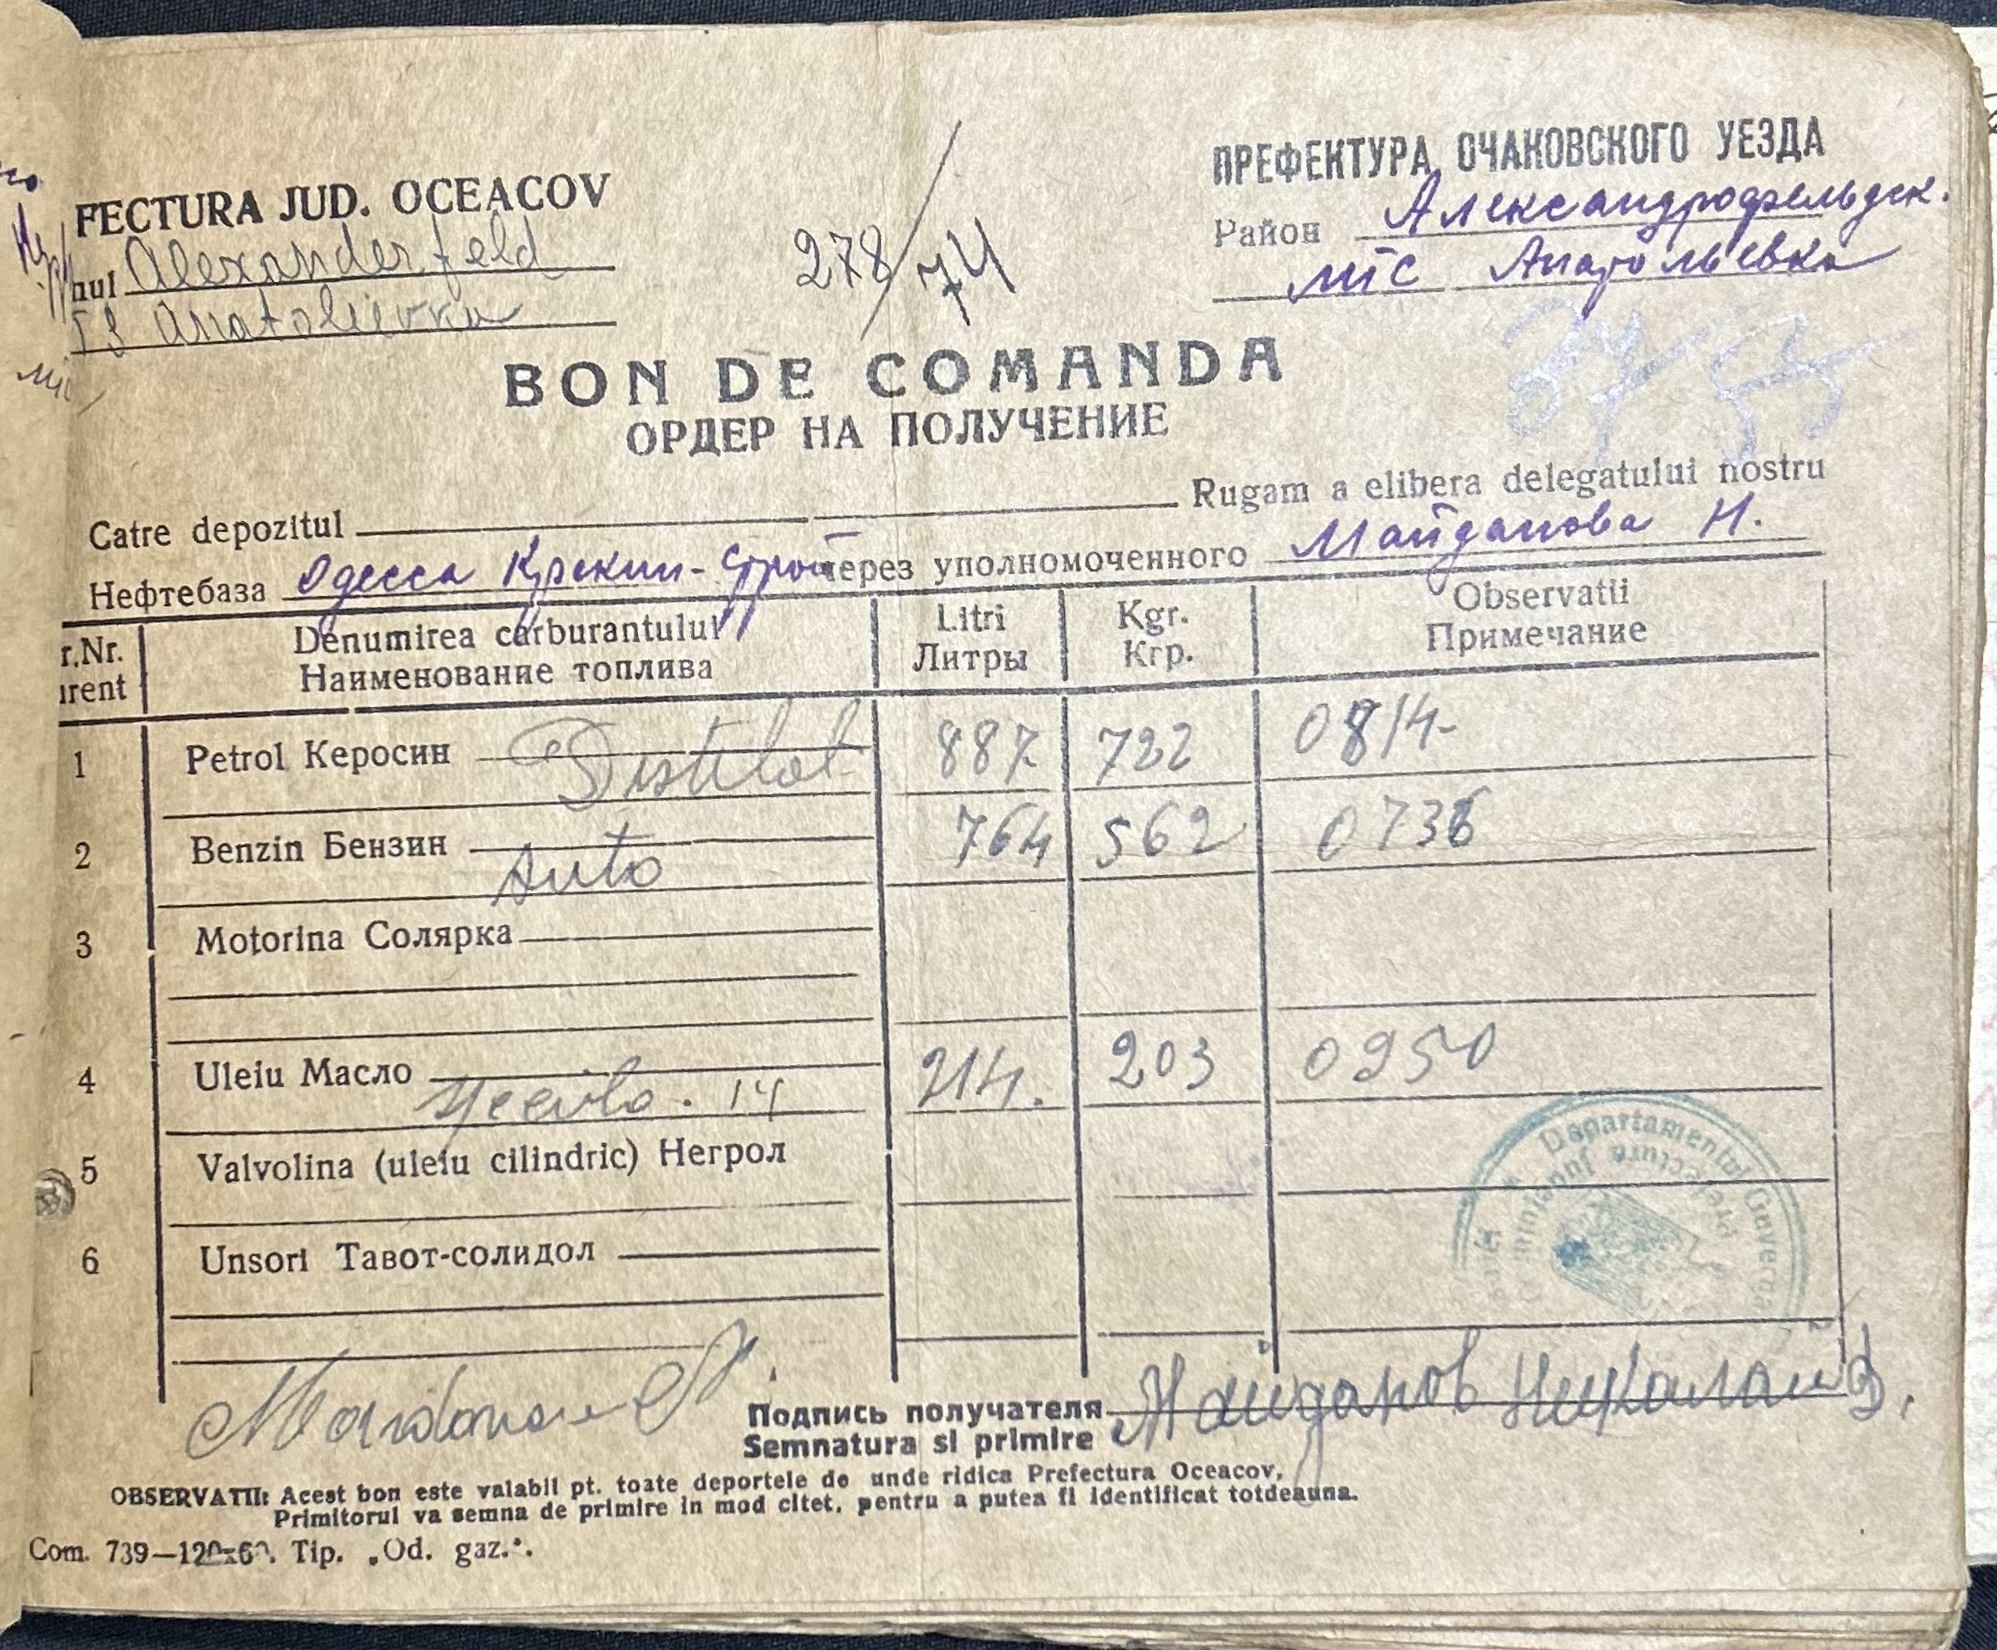 FECTURA JUD. OCEACOV
ПРЕФЕКТУРА ОЧАКОВСКОГО УЕЗДА
nul Alexanderfeld
278/74
Район Александрофельдск.
Anatolievka
мтс Анатольевка
BON DE COMANDA
ОРДЕР НА ПОЛУЧЕНИЕ
Catre depozitul Rugam a elibera delegatului nostru
Нефтебаза Одесса Крекин-Строй через уполномоченного Майданова Н.
r.Nr. Denumirea carburantului Litri Kgr. Observatii
urent Наименование топлива Литры Кгр. Примечание
1 Petrol Керосин Distilat 887 722 0814-
2 Benzin Бензин Auto 764 562 0736
3 Motorina Солярка
4 Uleiu Масло 14 214. 203 0950
5 Valvolina (uleiu cilindric) Негрол
6 Unsori Тавот-солидол
Departamentul
Prefectura Judetului
Подпись получателя Майданов Николай
Semnatura si primire
OBSERVATII: Acest bon este valabil pt. toate deportele de unde ridica Prefectura Oceacov,
Primitorul va semna de primire in mod citet, pentru a putea fi identificat totdeauna.
Com. 739—120x60. Tip. „Od. gaz.".